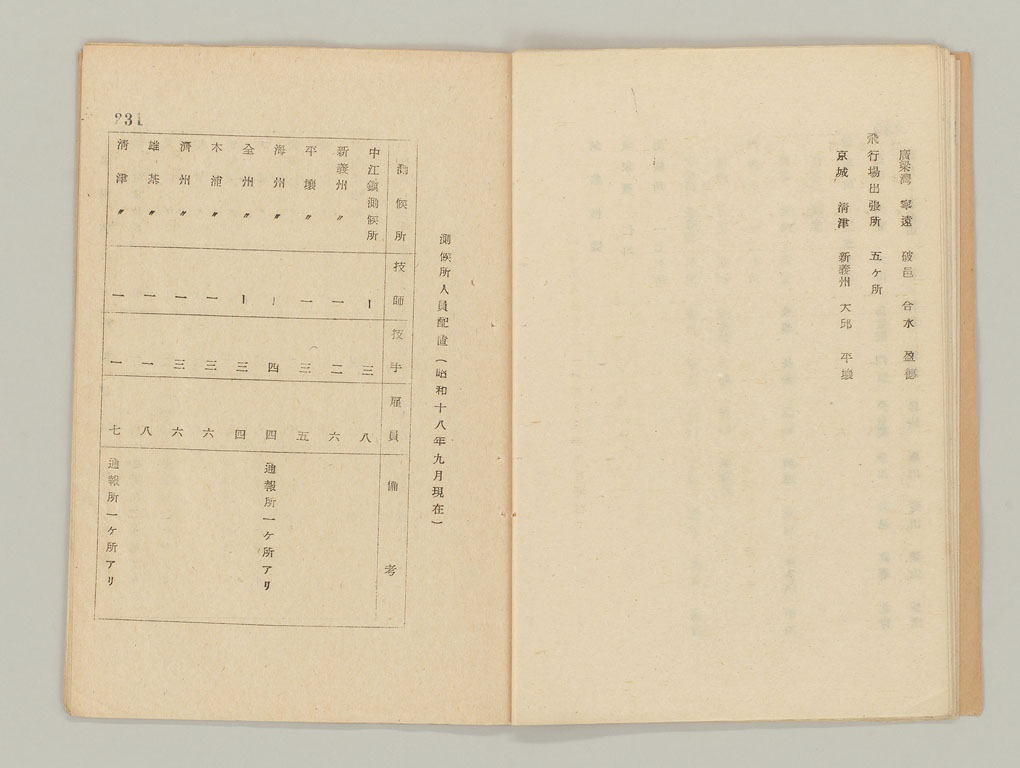 廣梁灣 寧遠 破邑 合水 盈德
飛行場出張所 五ヶ所
京城 清津 新義州 大邱 平壤
測候所人員配置(昭和十八年九月現在)
測候所 技師 技手 雇員 備考
中江鎭測候所 一 三 八
新義州〃 一 二 六
平壤〃 一 三 五
海州〃 一 四 四 通報所一ヶ所アリ
全州〃 一 三 四
木浦〃 一 三 六
濟州〃 一 三 六
雄基〃 一 一 八
清津〃 一 一 七 通報所一ヶ所アリ
231